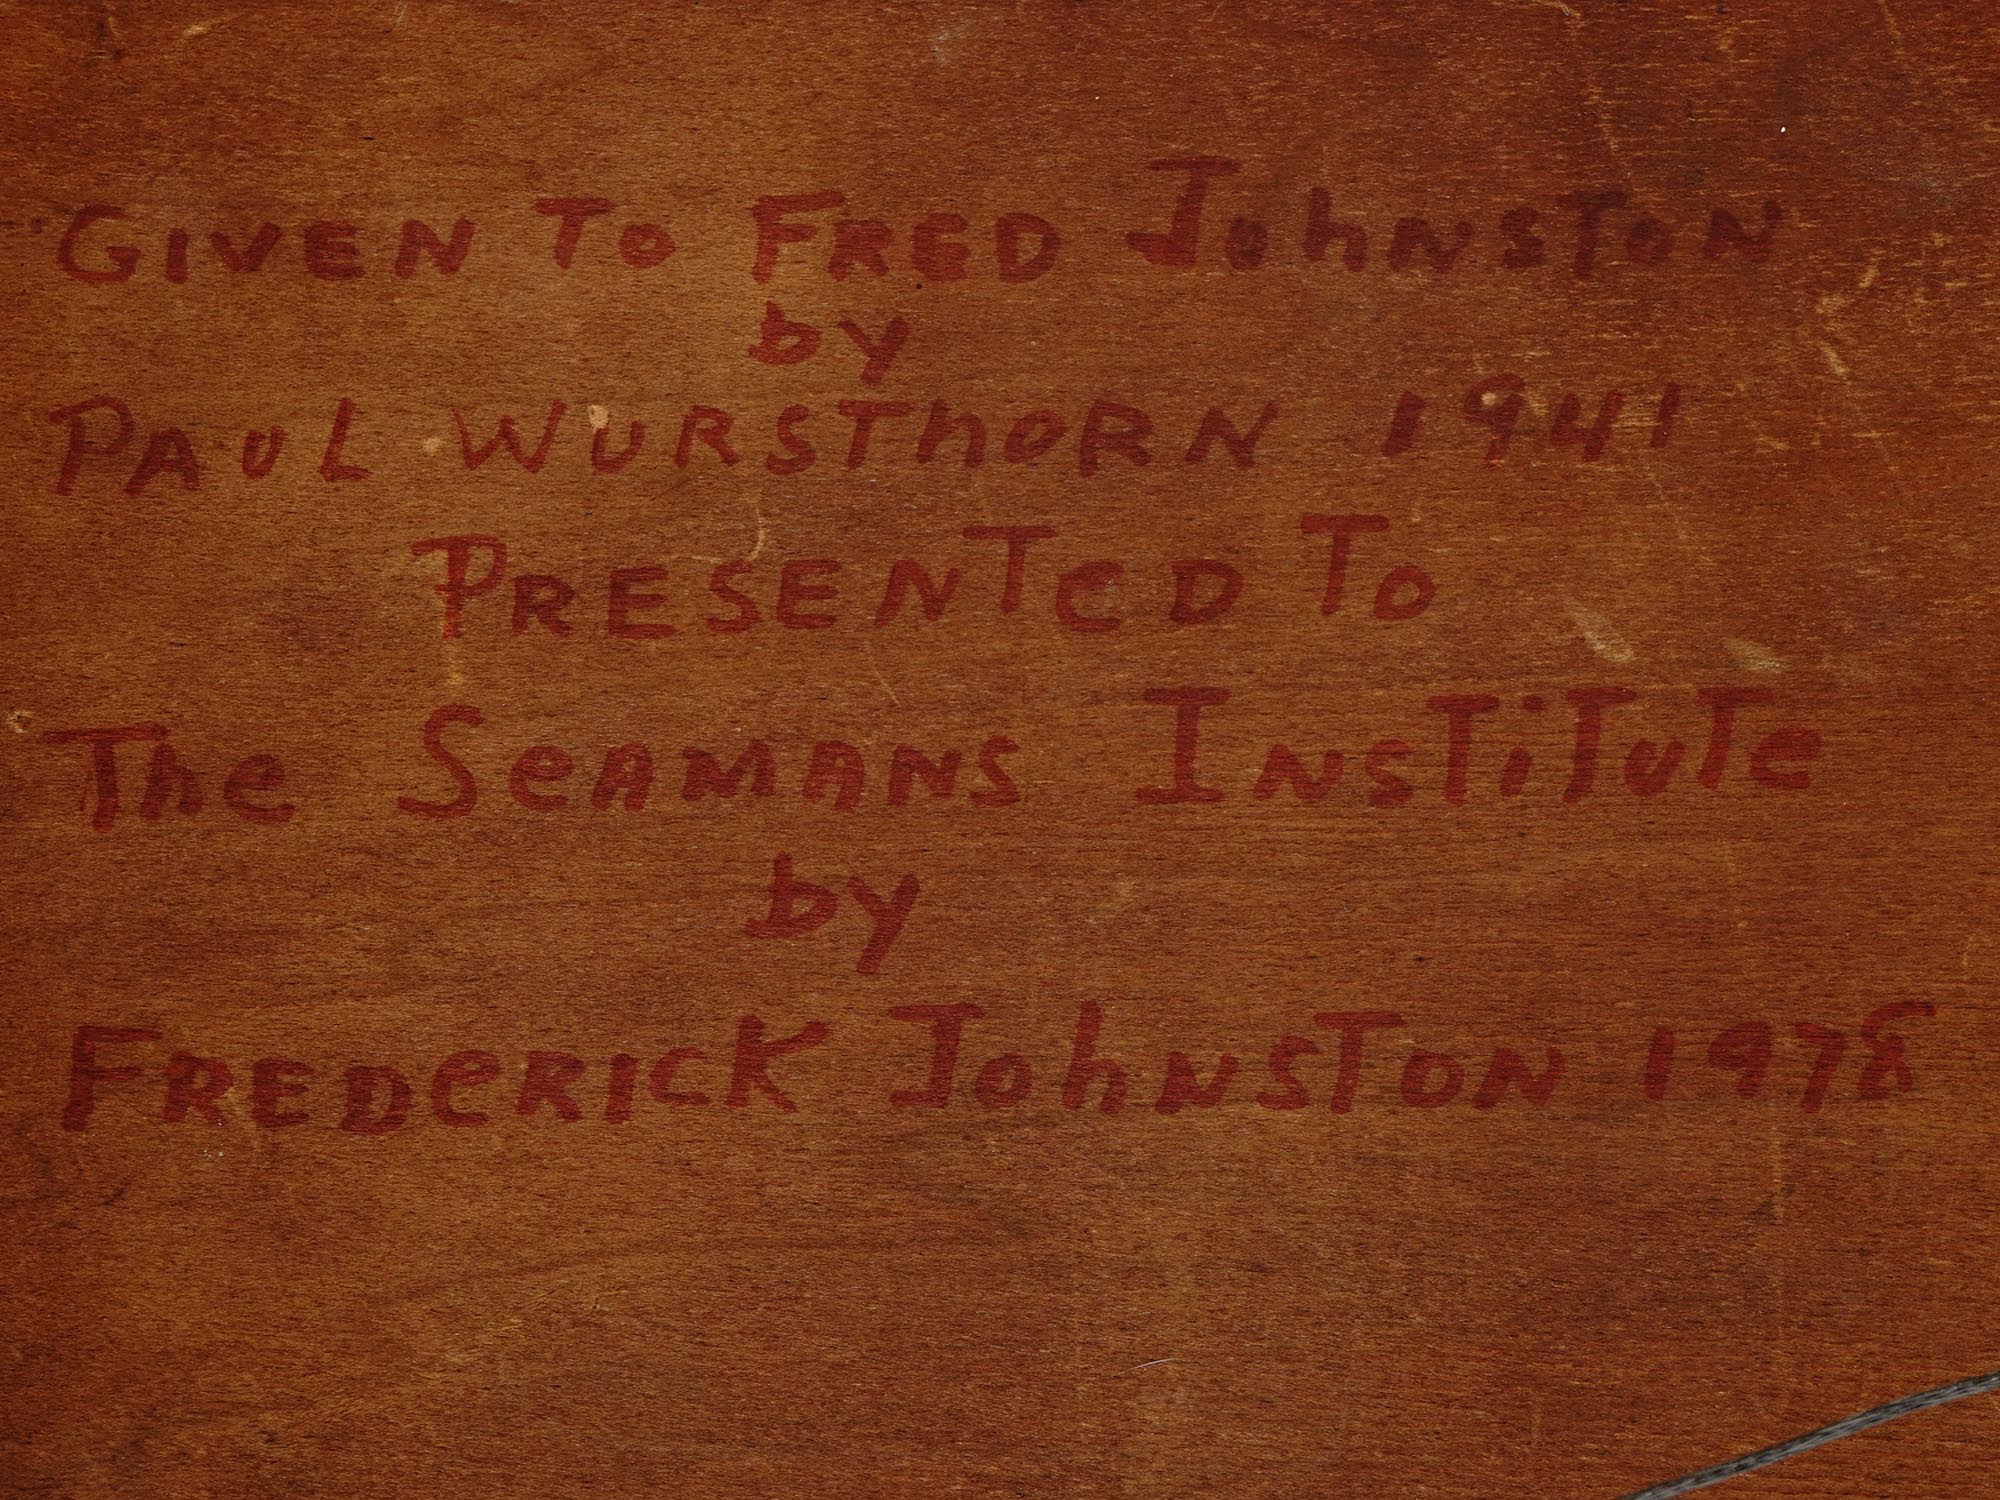 GIVEN To FRED JohNSTON
by
PAUL WURSThORN 1941
PRESENTeD To
The SeAMANS INSTiTuTe
by
FREDeRICK JohNSTON 1978